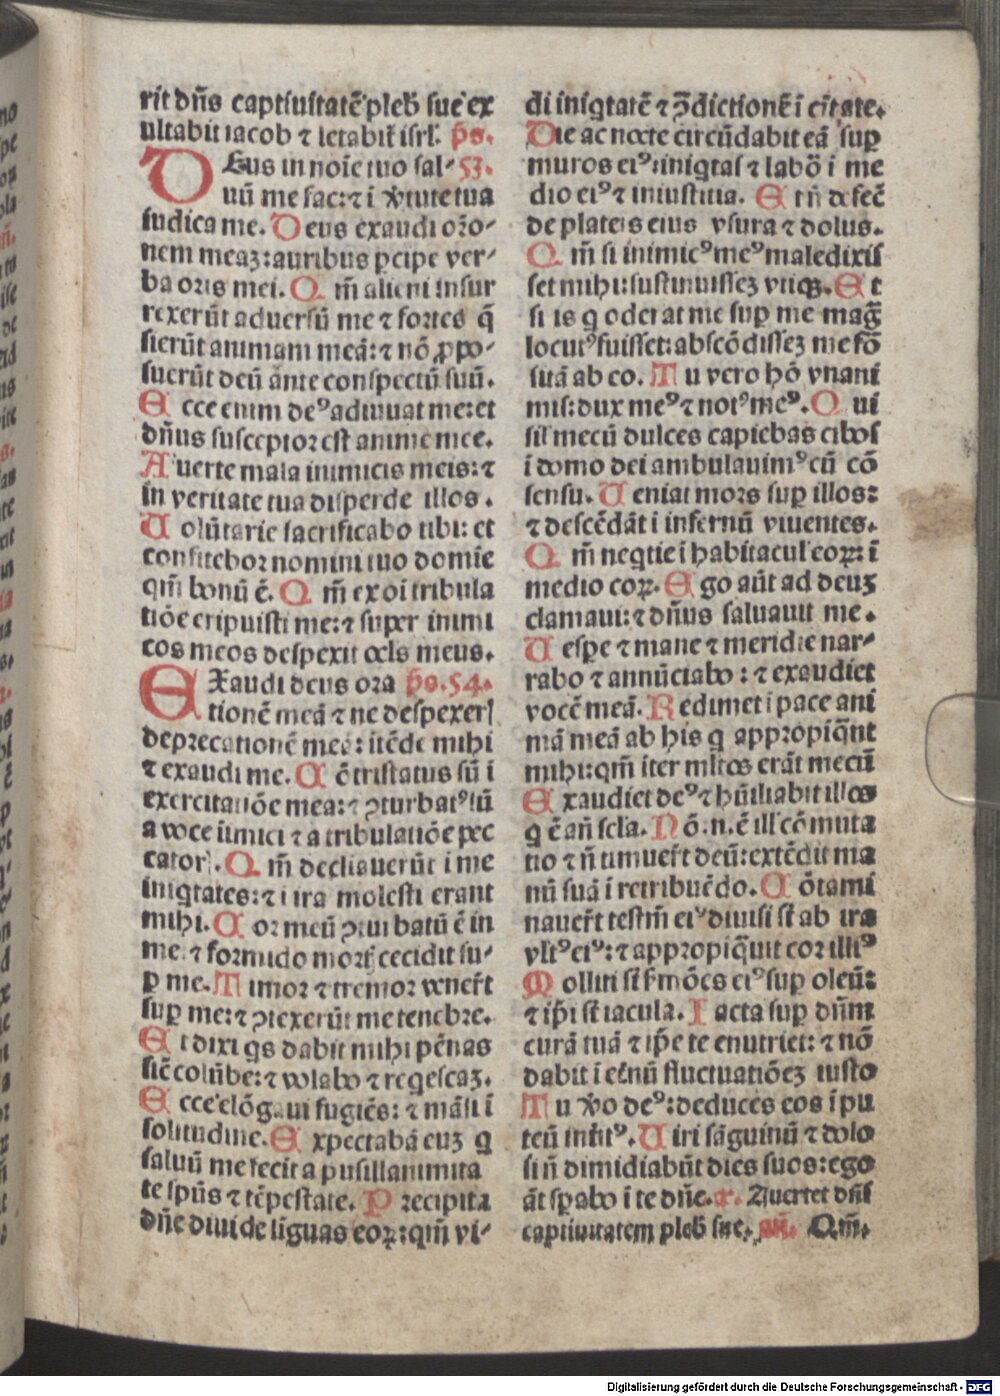 rit dn̄s captiuitatē pleb̄ sue ex
ultabit iacob ⁊ letabit̄ isrl̄. p̄s.
DEus in noīe tuo sal⸗ 53.
uū me fac:⁊ i v̓tute tua
iudica me. Deus exaudi or̄o⸗
nem meaz:auribus ꝑcipe ver⸗
ba oris mei. Qm̄ alieni insur
rexerūt aduersū me ⁊ fortes q̄
sierūt animam meā:⁊ nō ꝓpo⸗
suerūt deū ante conspectū suū.
Ecce enim deꝰ adiuuat me:et
dn̄us susceptor est anime mee.
Auerte mala inimicis meis:⁊
in veritate tua disperde illos.
Uolūtarie sacrificabo tibi: et
confitebor nomini tuo domīe
qm̄ bonū ē. Qm̄ ex oi tribula
tiōe eripuisti me:⁊ super inimi
cos meos despexit ocls meus.
EXaudi deus ora p̄s.54.
tionē meā ⁊ ne despexerꝭ
deprecationē meā: itēde mihi
⁊ exaudi me. Cōtristatus sū i
exercitatiōe mea:⁊ ꝯturbatꝰ sū
a voce iimici ⁊ a tribulatiōe pec
catorꝭ. Qm̄ decliauerūt i me
iniq̄tates:⁊ i ira molesti erant
mihi. Cor meū ꝯturbatū ē in
me:⁊ formido mortꝭ cecidit su⸗
ꝑ me. Timor ⁊ tremor vener̄t
suꝑ me:⁊ ꝯtexerūt me tenebre.
Et dixi qs dabit mihi pēnas
sic̄ colūbe:⁊ volabo ⁊ reqescaz.
Ecce elōgaui fugiēs: ⁊ māsi i
solitudine. Expectabā euz q
saluū me fecit a pusillanimita
te sp̄us ⁊ tēpestate. Precipita
dn̄e diuide liguas eoꝝ:qm̄ vi⸗
di iniq̄tatē ⁊ ꝯ̄dictionē i ciuitate.
Die ac nocte circūdabit eā suꝑ
muros eiꝰ:iniq̄tas ⁊ labō i me
dio eiꝰ ⁊ iniustitia. Et n̄ defec̄
de plateis eius vsura ⁊ dolus.
Qm̄ si inimicꝰ meꝰ maledixis
set mihi:sustinuissez vtiqꝫ. Et
si is q oderat me suꝑ me mag̅
locutꝰ fuisset:abscōdissez me fō
suā ab eo. Tu vero hō vnani
mis:dux meꝰ ⁊ notꝰ meꝰ. Qui
sil̄ mecū dulces capiebas cibos
i domo dei ambulauimꝰ cū cō
sensu. Ueniat mors suꝑ illos:
⁊ descēdāt i infernū viuentes.
Qm̄ neqtie i habitacul̄ eoꝝ: ī
medio eoꝝ. Ego aūt ad deuz
clamaui:⁊ dn̄us saluauit me.
Uespe ⁊ mane ⁊ meridie nar⸗
rabo ⁊ annūciabo : ⁊ exaudiet
vocē meā. Redimet i pace ani
mā meā ab his q appropiq̄nt
mihi:qm̄ iter ml̄tos erāt mecū
Exaudiet deꝰ ⁊ hūiliabit illos
q ē añ scl̄a. Nō.n.ē ill̄ cōmuta
tio ⁊ n̄ timuer̄t deū:extēdit ma
nū suā i retribuēdo. Cōtami
nauer̄t testm̄ eiꝰ diuisi st̄ ab ira
vl̄tꝰ eiꝰ:⁊ appropiq̄uit cor illiꝰ
Molliti st̄ s̄mōes eiꝰ suꝑ oleū:
⁊ ip̄i st̄ iacula. Iacta suꝑ dn̄m
curā tuā ⁊ ip̄e te enutriet: ⁊ nō
dabit i et̄nū fluctuatiōez iusto
Tu v̓o deꝰ:deduces eos i pu
teū intit̄ꝰ. Uiri sāguinū ⁊ dolo
si n̄ dimidiabūt dies suos:ego
āt sp̄abo i te dn̄e. r. Auertet dn̄s
captiuitatem pleb̄ sue. an̄. Qm̄.
Digitalisierung gefördert durch die Deutsche Forschungsgemeinschaft - DFG